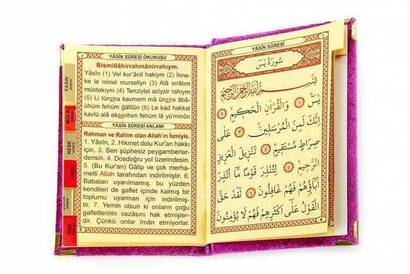 YÂSÎN SÛRESİ OKUNUŞU
Bismillâhirrahmânirrahıym.
Yâsîn (1) Vel kur'ânil hakiym (2) İnne-
ke le minel murseliyn (3) Alâ sırâtın
müstekıym (4) Tenziylel azîzir rahıym
(5) Li tünzira kavmem mâ ünzira âbâ-
ühüm fehüm ğâfilûn (6) Le kad hakkal
kavlü alâ ekserihim fehüm lâ yü'minûn
YÂSÎN SÛRESİ ANLAMI
Rahman ve Rahim olan Allah'ın İsmiyle.
1. Yâsîn, 2. Hikmet dolu Kur'an hakkı
için, 3. Sen şüphesiz peygamberler-
densin. 4. Dosdoğru yol üzerindesin.
5. (Bu Kur'an) Gâlip ve çok merha-
metli Allah tarafından indirilmiştir. 6.
Babaları uyarılmamış, bu yüzden
kendileri de gaflet içinde kalmış bir
toplumu uyarman için indirilmiştir.
7. Yemin olsun ki onların çoğu
gafletlerinin cezasını hak etmişler-
dir. Çünkü onlar îman etmiyorlar.
YÂSÎN
NEBE
YÂSÎN SÛRESİ
سُورَةُ يٰسٓ
بِسْمِ اللّٰهِ الرَّحْمٰنِ الرَّحِيمِ
يٰسٓ ﴿١﴾ وَالْقُرْاٰنِ الْحَكِيمِ ﴿٢﴾
اِنَّكَ لَمِنَ الْمُرْسَلِينَ ﴿٣﴾ عَلٰى
صِرَاطٍ مُسْتَقِيمٍ ﴿٤﴾ تَنْزِيلَ الْعَزِيزِ
الرَّحِيمِ ﴿٥﴾ لِتُنْذِرَ قَوْمًا مَٓا اُنْذِرَ
اٰبَٓاؤُ۬هُمْ فَهُمْ غَافِلُونَ ﴿٦﴾ لَقَدْ حَقَّ
الْقَوْلُ عَلٰٓى اَكْثَرِهِمْ فَهُمْ لَا يُؤْمِنُونَ